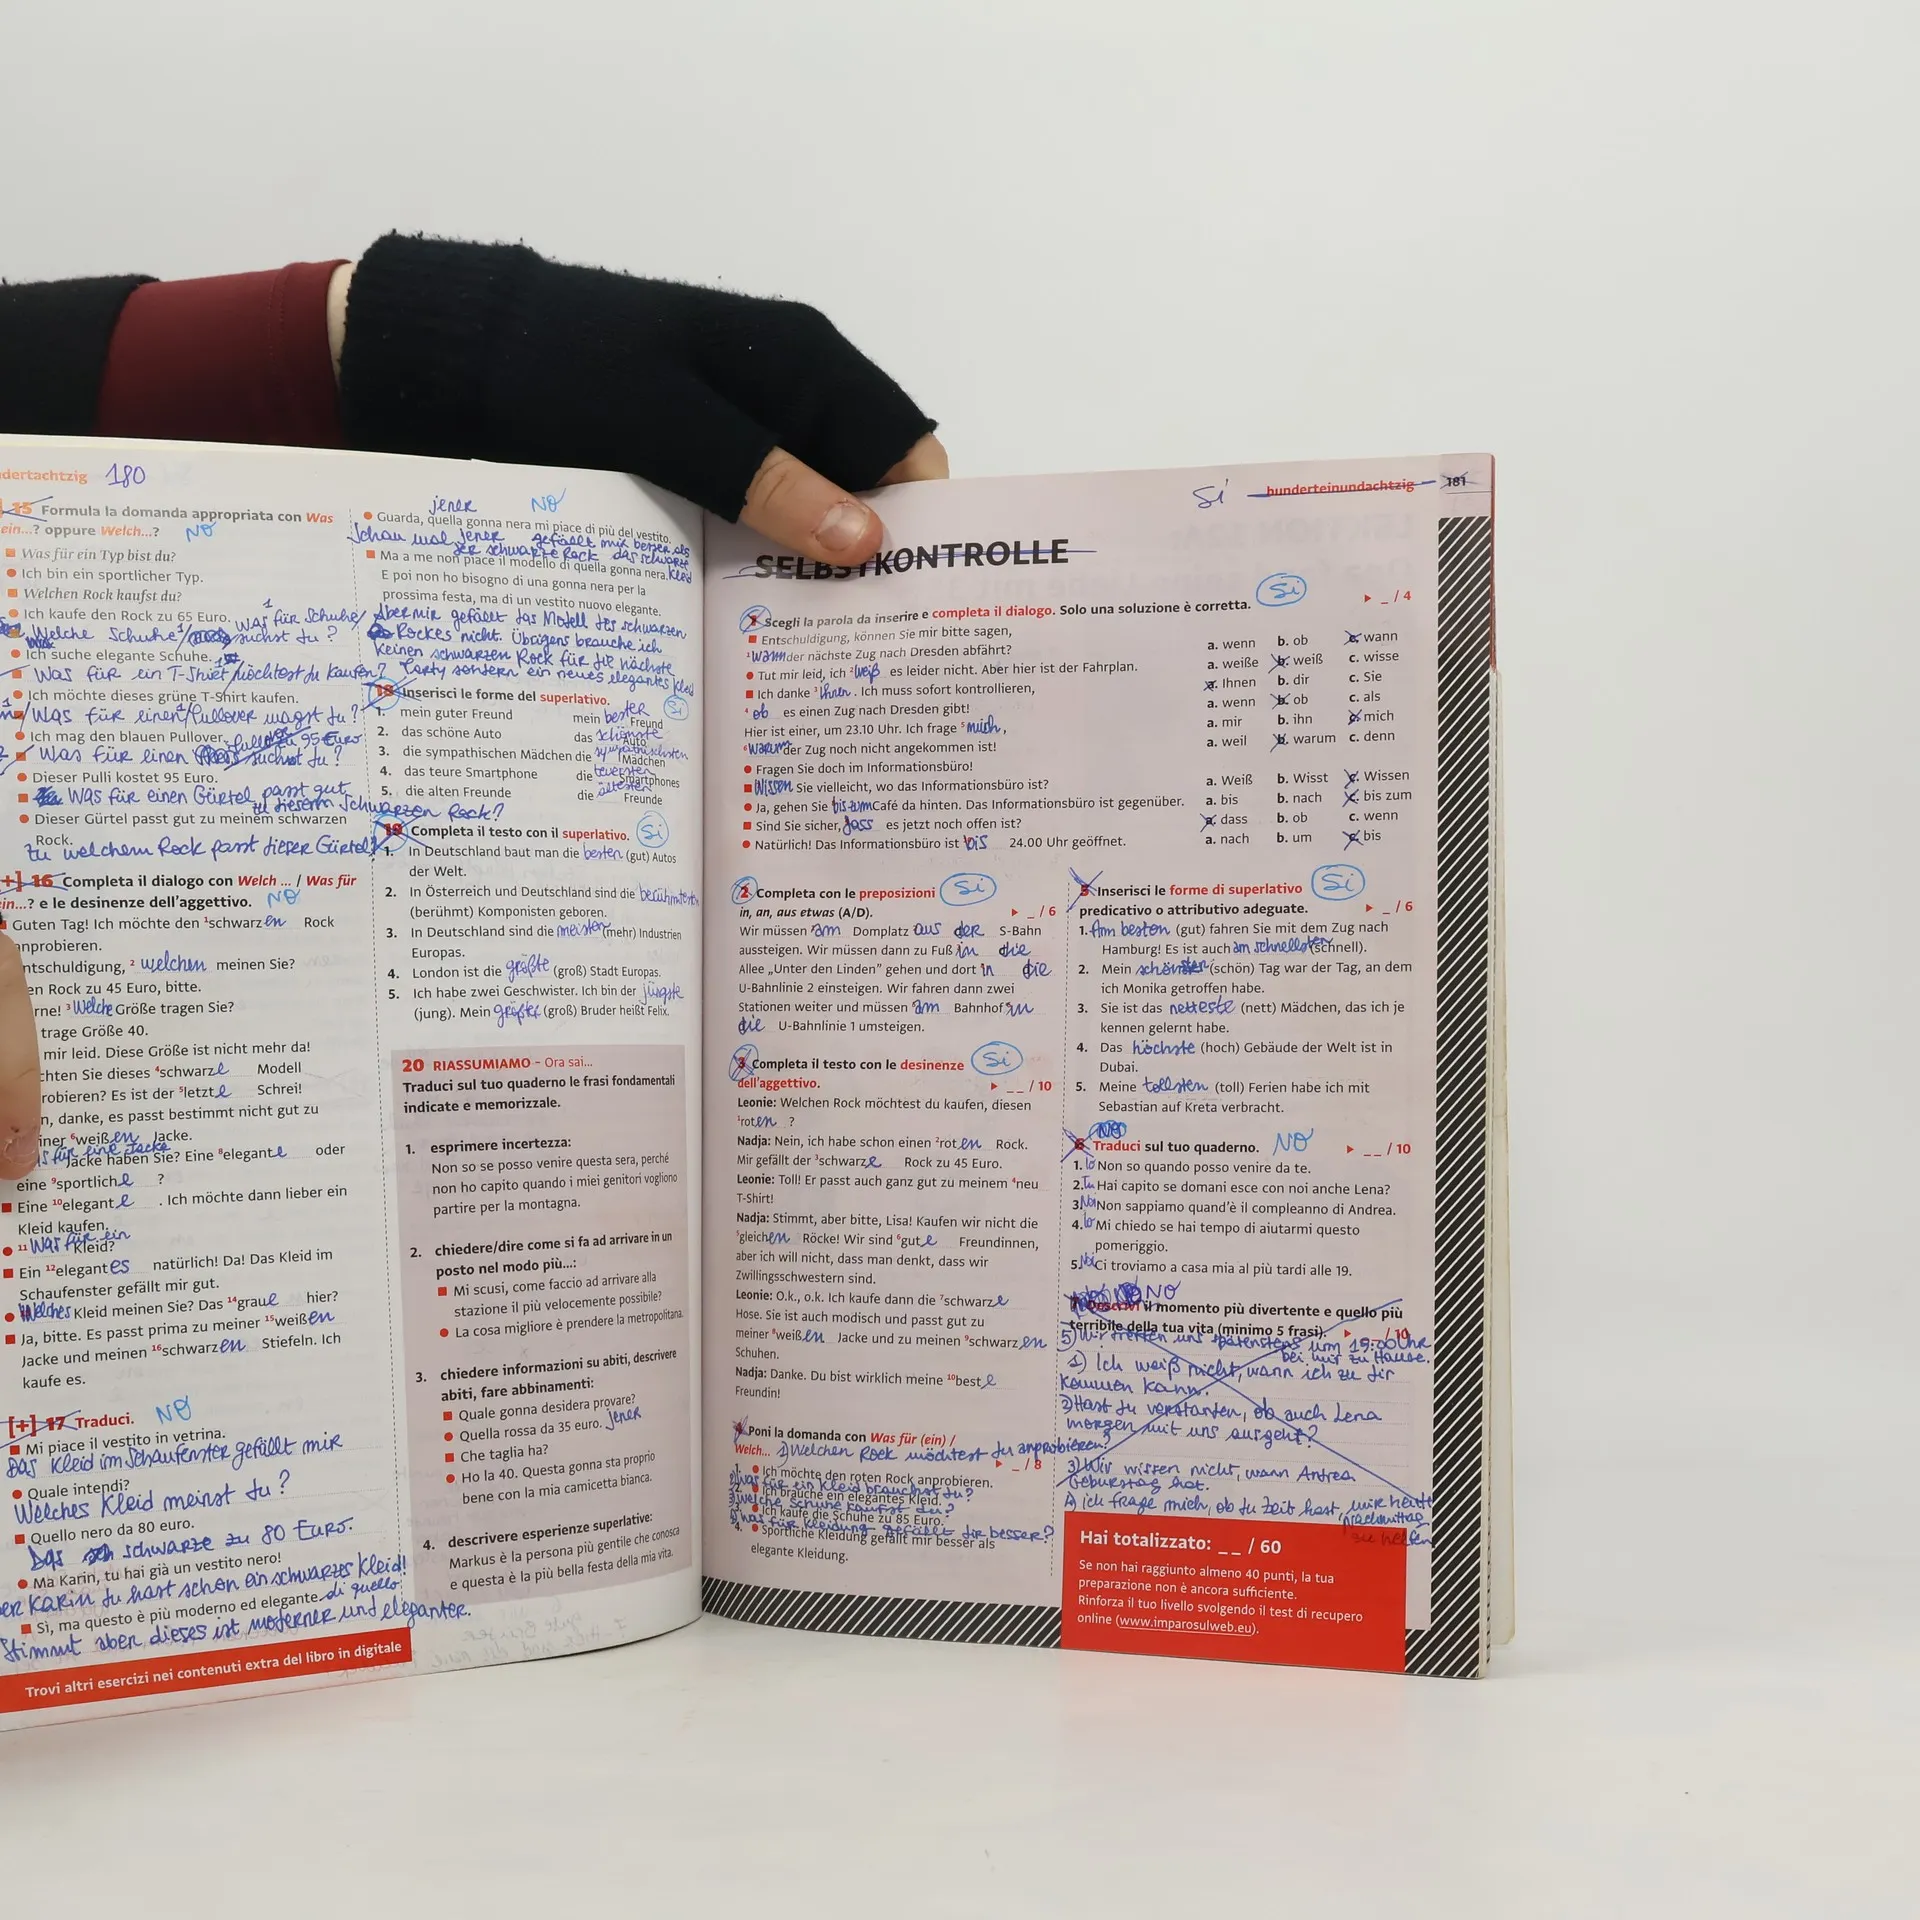 dertachtzig 180
15 Formula la domanda appropriata con Was
ein...? oppure Welch...? NO
Was für ein Typ bist du?
Ich bin ein sportlicher Typ.
Welchen Rock kaufst du?
Ich kaufe den Rock zu 65 Euro. Was für Schuhe/
Welche Schuhe/ suchst du?
Ich suche elegante Schuhe.
Was für ein T-Shirt möchtest du kaufen?
Ich möchte dieses grüne T-Shirt kaufen.
/Was für einen/Pullover magst du?
Ich mag den blauen Pullover zu 95 Euro
Was für einen suchst du?
Dieser Pulli kostet 95 Euro.
Was für einen Gürtel passt gut
zu diesem schwarzen Rock?
Dieser Gürtel passt gut zu meinem schwarzen
Rock.
Zu welchem Rock passt dieser Gürtel?
[+] 16 Completa il dialogo con Welch ... / Was für
ein...? e le desinenze dell'aggettivo. NO
Guten Tag! Ich möchte den ¹schwarzen Rock
anprobieren.
ntschuldigung, ² welchen meinen Sie?
en Rock zu 45 Euro, bitte.
rne! ³Welche Größe tragen Sie?
trage Größe 40.
mir leid. Diese Größe ist nicht mehr da!
chten Sie dieses ⁴schwarze Modell
robieren? Es ist der ⁵letzte Schrei!
n, danke, es passt bestimmt nicht gut zu
iner ⁶weißen Jacke.
s für eine Jacke
Jacke haben Sie? Eine ⁸elegante oder
eine ⁹sportliche ?
Eine ¹⁰elegante . Ich möchte dann lieber ein
Kleid kaufen.
¹¹ Was für ein Kleid?
Ein ¹²elegantes natürlich! Da! Das Kleid im
Schaufenster gefällt mir gut.
Welches Kleid meinen Sie? Das ¹⁴graue hier?
Ja, bitte. Es passt prima zu meiner ¹⁵weißen
Jacke und meinen ¹⁶schwarzen Stiefeln. Ich
kaufe es.
[+] 17 Traduci. NO
Mi piace il vestito in vetrina.
Das Kleid im Schaufenster gefällt mir
Quale intendi?
Welches Kleid meinst du?
Quello nero da 80 euro.
Das schwarze zu 80 Euro.
Ma Karin, tu hai già un vestito nero!
er Karin du hast schon ein schwarzes Kleid!
Sì, ma questo è più moderno ed elegante. di quello
Stimmt aber dieses ist moderner und eleganter.
Trovi altri esercizi nei contenuti extra del libro in digitale
jener NO
Guarda, quella gonna nera mi piace di più del vestito.
Schau mal jener gefällt mir besser als
der schwarze Rock das schwarze
Kleid
Ma a me non piace il modello di quella gonna nera.
E poi non ho bisogno di una gonna nera per la
prossima festa, ma di un vestito nuovo elegante.
Aber mir gefällt das Modell des schwarzen
Rockes nicht. Übrigens brauche ich
keinen schwarzen Rock für die nächste
Party sondern ein neues elegantes Kleid
18 Inserisci le forme del superlativo. Si
1. mein guter Freund mein bester Freund
2. das schöne Auto das schönste Auto
3. die sympathischen Mädchen die sympathischsten Mädchen
4. das teure Smartphone die teuersten Smartphones
5. die alten Freunde die ältesten Freunde
19 Completa il testo con il superlativo. Si
1. In Deutschland baut man die besten (gut) Autos
der Welt.
2. In Österreich und Deutschland sind die berühmtesten
(berühmt) Komponisten geboren.
3. In Deutschland sind die meisten (mehr) Industrien
Europas.
4. London ist die größte (groß) Stadt Europas.
5. Ich habe zwei Geschwister. Ich bin der jüngste
(jung). Mein größter (groß) Bruder heißt Felix.
20 RIASSUMIAMO – Ora sai...
Traduci sul tuo quaderno le frasi fondamentali
indicate e memorizzale.
1. esprimere incertezza:
Non so se posso venire questa sera, perché
non ho capito quando i miei genitori vogliono
partire per la montagna.
2. chiedere/dire come si fa ad arrivare in un
posto nel modo più...:
Mi scusi, come faccio ad arrivare alla
stazione il più velocemente possibile?
La cosa migliore è prendere la metropolitana.
3. chiedere informazioni su abiti, descrivere
abiti, fare abbinamenti:
Quale gonna desidera provare?
Quella rossa da 35 euro. jener
Che taglia ha?
Ho la 40. Questa gonna sta proprio
bene con la mia camicetta bianca.
4. descrivere esperienze superlative:
Markus è la persona più gentile che conosca
e questa è la più bella festa della mia vita.
Si hunderteinundachtzig 181
SELBSTKONTROLLE
1 Scegli la parola da inserire e completa il dialogo. Solo una soluzione è corretta. Si _ / 4
Entschuldigung, können Sie mir bitte sagen,
¹wann der nächste Zug nach Dresden abfährt? a. wenn b. ob c. wann
Tut mir leid, ich ²weiß es leider nicht. Aber hier ist der Fahrplan. a. weiße b. weiß c. wisse
Ich danke ³Ihnen. Ich muss sofort kontrollieren, a. Ihnen b. dir c. Sie
⁴ ob es einen Zug nach Dresden gibt! a. wenn b. ob c. als
Hier ist einer, um 23.10 Uhr. Ich frage ⁵mich, a. mir b. ihn c. mich
⁶warum der Zug noch nicht angekommen ist! a. weil b. warum c. denn
Fragen Sie doch im Informationsbüro!
Wissen Sie vielleicht, wo das Informationsbüro ist? a. Weiß b. Wisst c. Wissen
Ja, gehen Sie bis zum Café da hinten. Das Informationsbüro ist gegenüber. a. bis b. nach c. bis zum
Sind Sie sicher, dass es jetzt noch offen ist? a. dass b. ob c. wenn
Natürlich! Das Informationsbüro ist bis 24.00 Uhr geöffnet. a. nach b. um c. bis
2 Completa con le preposizioni Si
in, an, aus etwas (A/D). _ / 6
Wir müssen am Domplatz aus der S-Bahn
aussteigen. Wir müssen dann zu Fuß in die
Allee „Unter den Linden" gehen und dort in die
U-Bahnlinie 2 einsteigen. Wir fahren dann zwei
Stationen weiter und müssen am Bahnhof in
die U-Bahnlinie 1 umsteigen.
3 Completa il testo con le desinenze Si
dell'aggettivo. _ _ / 10
Leonie: Welchen Rock möchtest du kaufen, diesen
¹roten ?
Nadja: Nein, ich habe schon einen ²roten Rock.
Mir gefällt der ³schwarze Rock zu 45 Euro.
Leonie: Toll! Er passt auch ganz gut zu meinem ⁴neu
T-Shirt!
Nadja: Stimmt, aber bitte, Lisa! Kaufen wir nicht die
⁵gleichen Röcke! Wir sind ⁶gute Freundinnen,
aber ich will nicht, dass man denkt, dass wir
Zwillingsschwestern sind.
Leonie: O.k., o.k. Ich kaufe dann die ⁷schwarze
Hose. Sie ist auch modisch und passt gut zu
meiner ⁸weißen Jacke und zu meinen ⁹schwarzen
Schuhen.
Nadja: Danke. Du bist wirklich meine ¹⁰beste
Freundin!
4 Poni la domanda con Was für (ein) /
Welch... 1) Welchen Rock möchtest du anprobieren? _ / 8
1. Ich möchte den roten Rock anprobieren.
2) Was für ein Kleid brauchst du?
2. Ich brauche ein elegantes Kleid.
3) Welche Schuhe kaufst du?
3. Ich kaufe die Schuhe zu 85 Euro.
4) Was für Kleidung gefällt dir besser?
4. Sportliche Kleidung gefällt mir besser als
elegante Kleidung.
5 Inserisci le forme di superlativo Si
predicativo o attributivo adeguate. _ / 6
1. Am besten (gut) fahren Sie mit dem Zug nach
Hamburg! Es ist auch am schnellsten (schnell).
2. Mein schönster (schön) Tag war der Tag, an dem
ich Monika getroffen habe.
3. Sie ist das netteste (nett) Mädchen, das ich je
kennen gelernt habe.
4. Das höchste (hoch) Gebäude der Welt ist in
Dubai.
5. Meine tollsten (toll) Ferien habe ich mit
Sebastian auf Kreta verbracht.
NO
6 Traduci sul tuo quaderno. NO _ _ / 10
1. Io Non so quando posso venire da te.
2. Tu Hai capito se domani esce con noi anche Lena?
3. Noi Non sappiamo quand'è il compleanno di Andrea.
4. Io Mi chiedo se hai tempo di aiutarmi questo
pomeriggio.
5. Noi Ci troviamo a casa mia al più tardi alle 19.
NO
7 Descrivi il momento più divertente e quello più
terribile della tua vita (minimo 5 frasi). _ _ / 10
5) Wir treffen uns spätestens um 19:00 Uhr
bei mir zu Hause.
1) Ich weiß nicht, wann ich zu dir
kommen kann.
2) Hast du verstanden, ob auch Lena
morgen mit uns ausgeht?
3) Wir wissen nicht, wann Andrea
Geburtstag hat.
4) ich frage mich, ob du Zeit hast, mir heute
Nachmittag
zu helfen
Hai totalizzato: _ _ / 60
Se non hai raggiunto almeno 40 punti, la tua
preparazione non è ancora sufficiente.
Rinforza il tuo livello svolgendo il test di recupero
online (www.imparosulweb.eu).